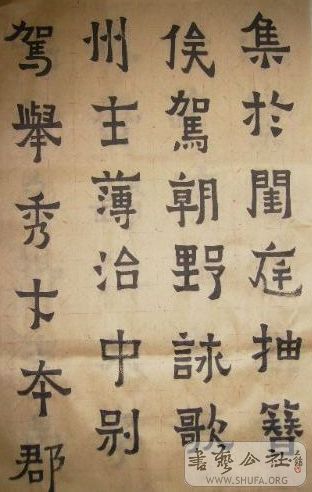 集於閨庭抽簪
俟駕朝野詠歌
州主薄治中别
駕舉秀才夲郡
書藝公社
WWW.SHUFA.ORG